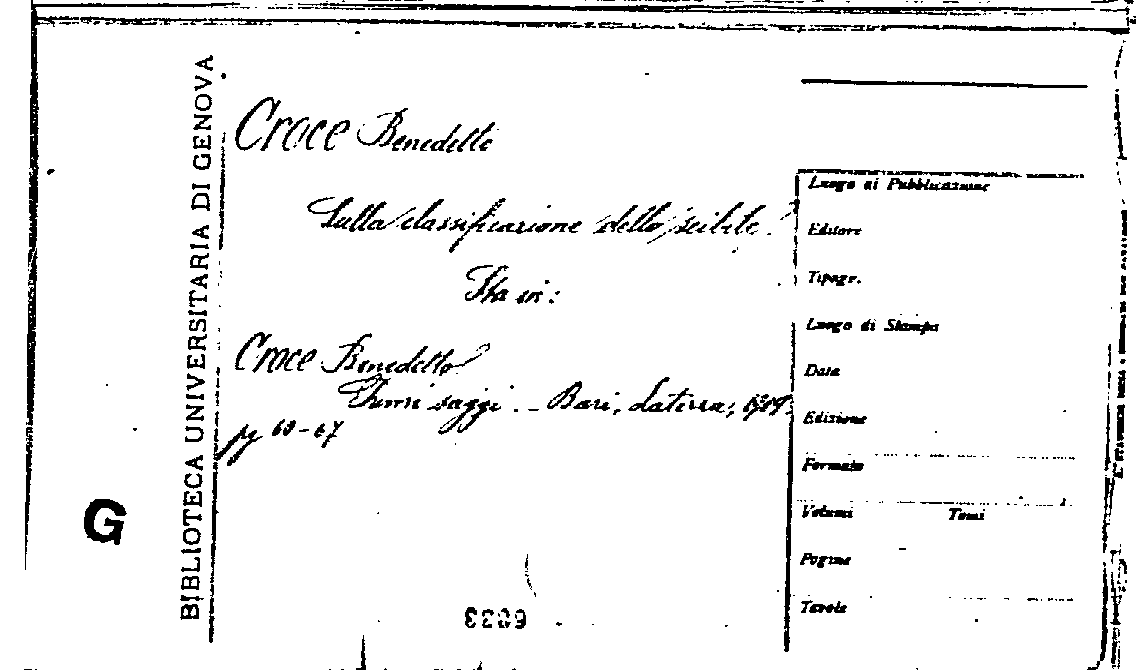 BIBLIOTECA UNIVERSITARIA DI GENOVA
Croce Benedetto
Sulla classificazione dello scibile.
Sta in:
Croce Benedetto
Primi saggi. - Bari, Laterza, 1919.
pg 60-67
G
Luogo di Pubblicazione
Editore
Tipogr.
Luogo di Stampa
Data
Edizione
Formato
Volumi Tomi
Pagine
Tavole